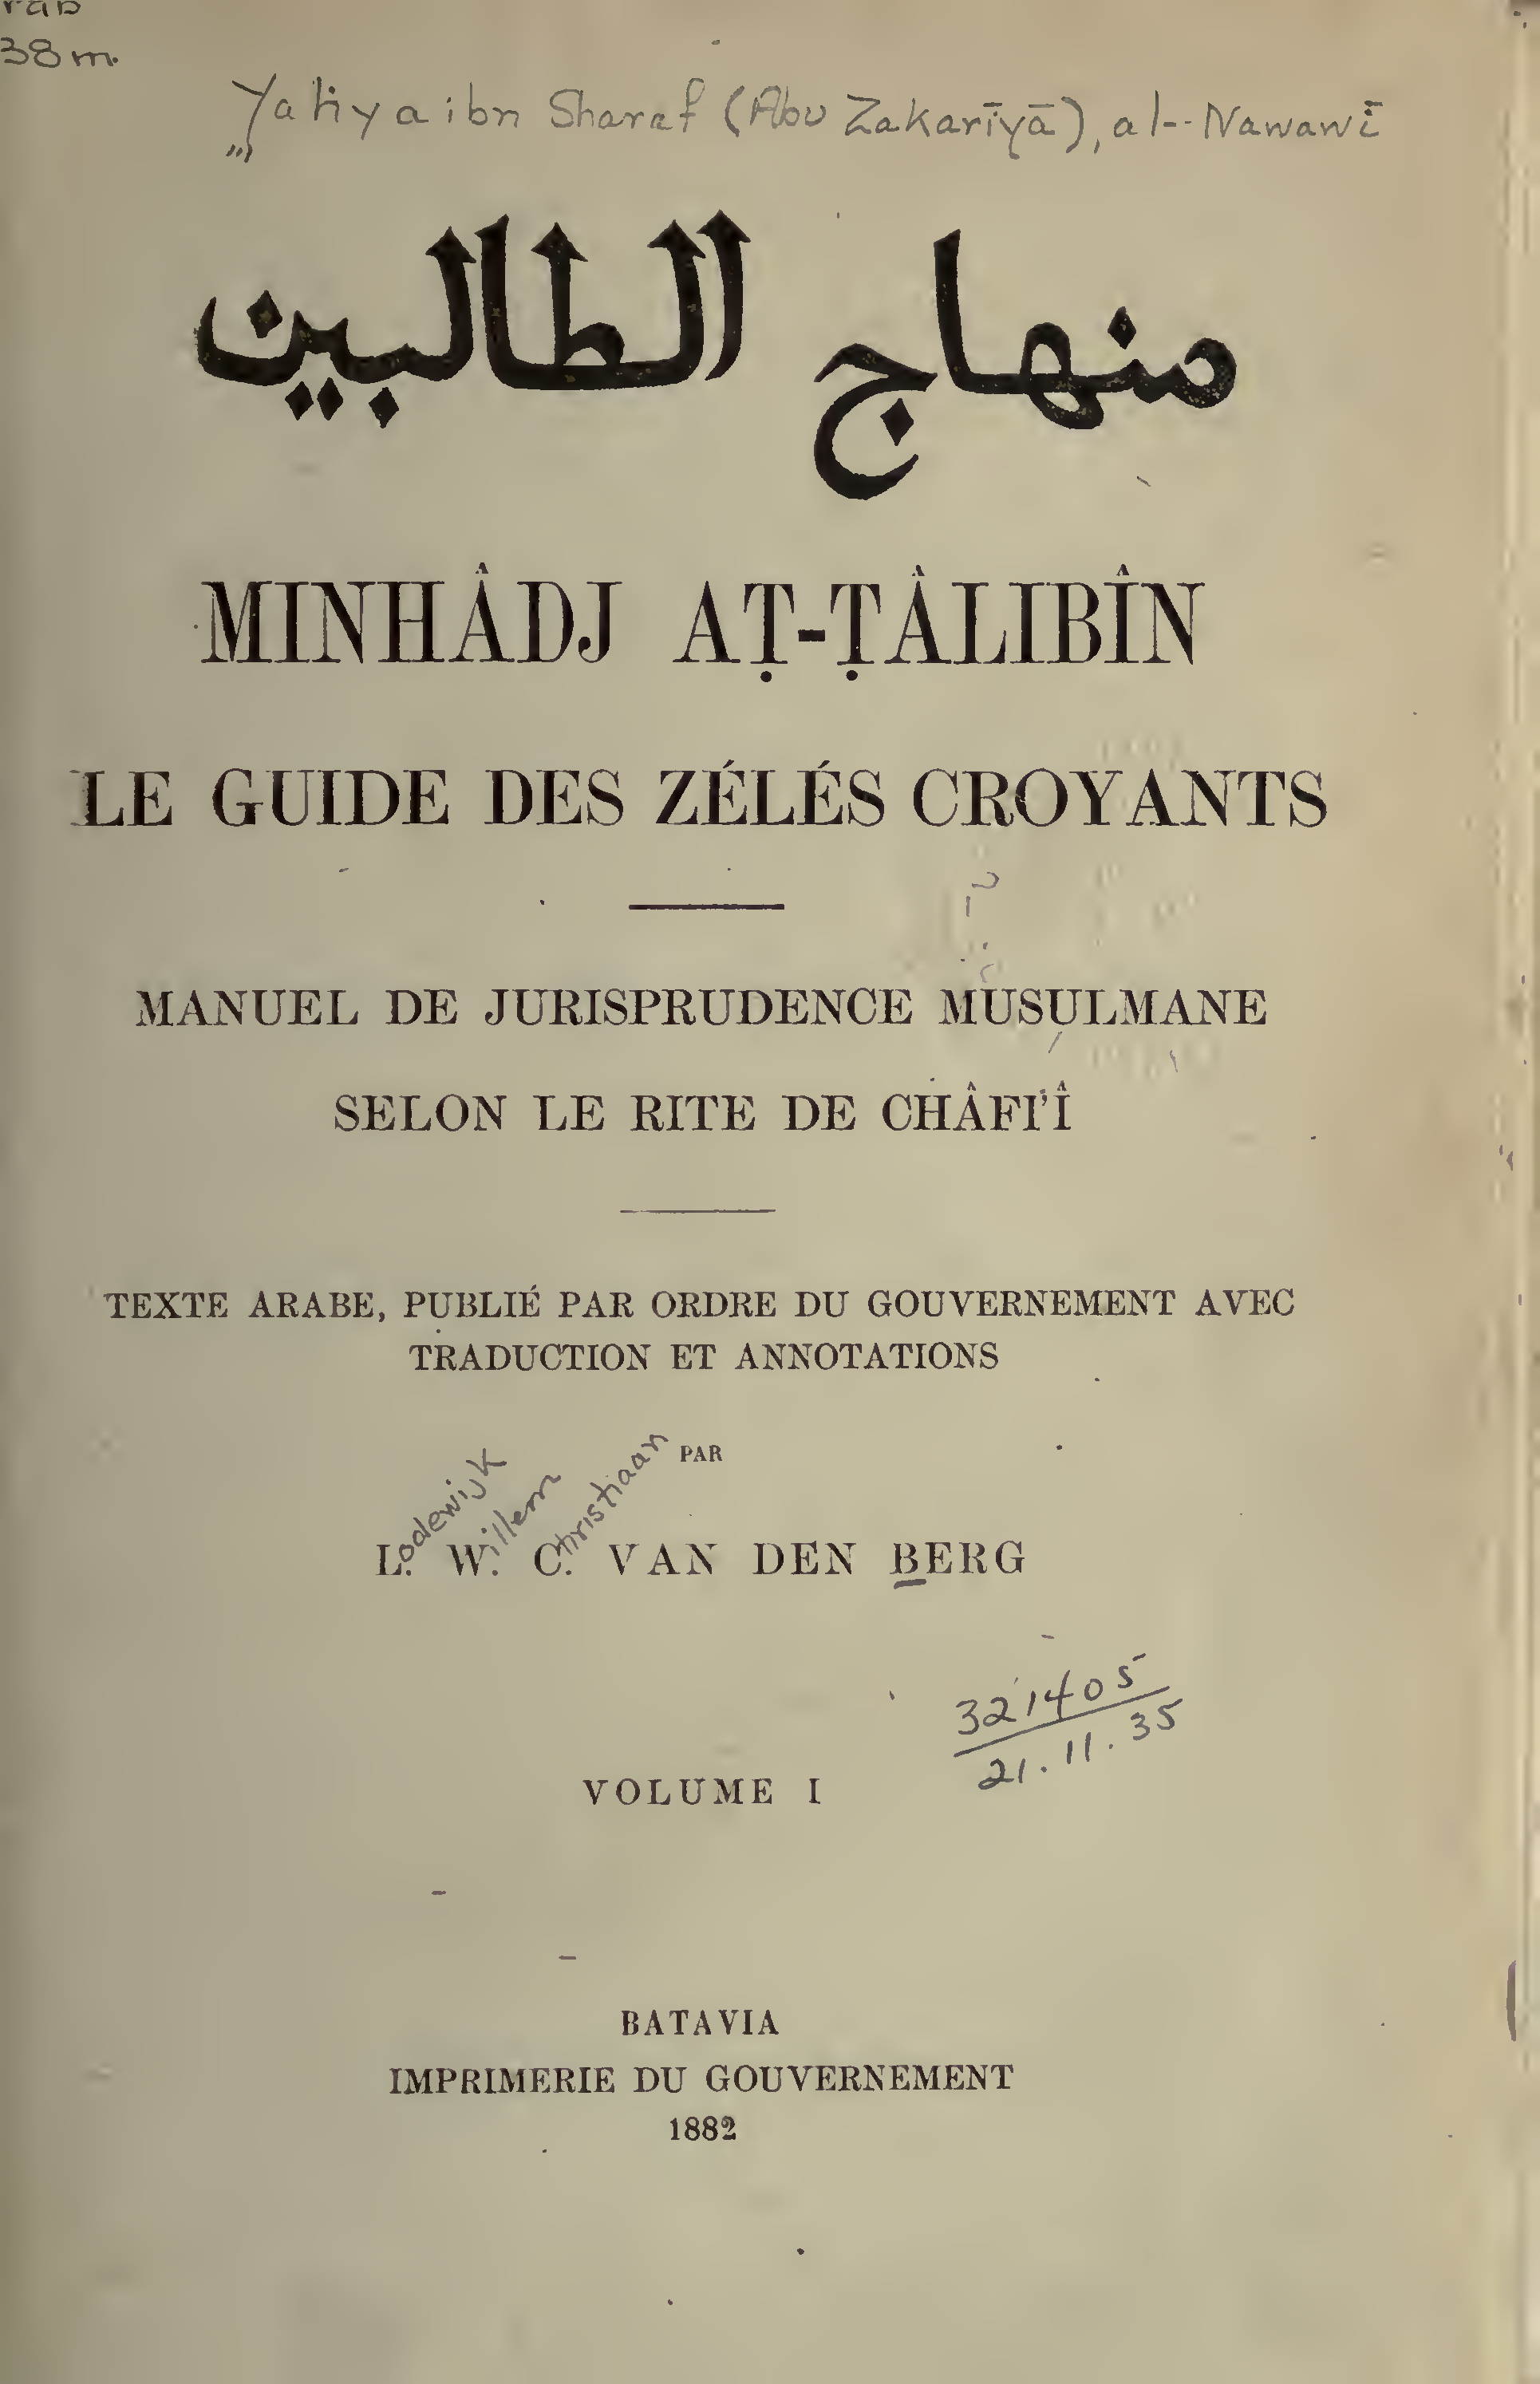 38m.
Yahya ibn Sharaf (Abu Zakarīyā), al-Nawawī
منهاج الطالبين
MINHÂDJ AṬ-ṬÂLIBÎN
LE GUIDE DES ZÉLÉS CROYANTS
MANUEL DE JURISPRUDENCE MUSULMANE
SELON LE RITE DE CHÂFI'Î
TEXTE ARABE, PUBLIÉ PAR ORDRE DU GOUVERNEMENT AVEC
TRADUCTION ET ANNOTATIONS
PAR
Lodewijk Willem Christiaan
L. W. C. VAN DEN BERG
321405
21.11.35
VOLUME I
BATAVIA
IMPRIMERIE DU GOUVERNEMENT
1882